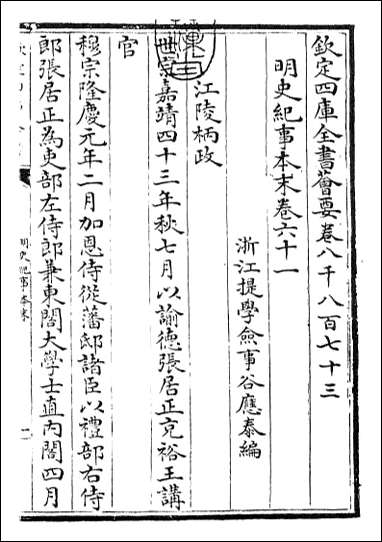 欽定四庫全書薈要卷八千八百七十三
明史紀事本末卷六十一
浙江提學僉事谷應泰編
江陵柄政
世宗嘉靖四十三年秋七月以諭德張居正充裕王講
官
穆宗隆慶元年二月加恩侍從藩邸諸臣以禮部右侍
郎張居正為吏部左侍郎兼東閣大學士直內閣四月
明史紀事本末